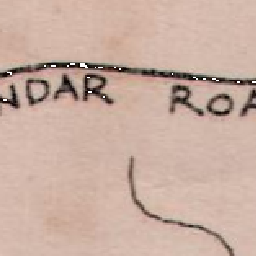 NDAR ROA